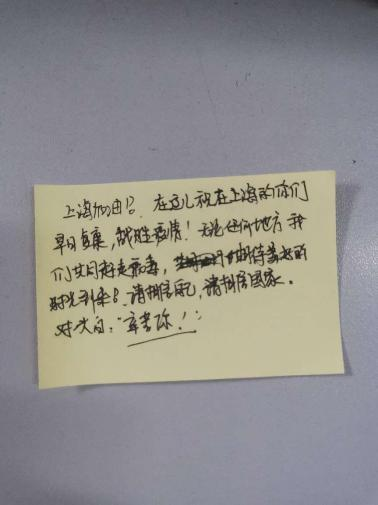 上海加油！在这儿祝在上海的你们
早日安康，战胜疫情！无论任何地方我
们共同赶走病毒，期待美好的
时光到来！请相信自己，请相信国家。
对大白：“辛苦你！”